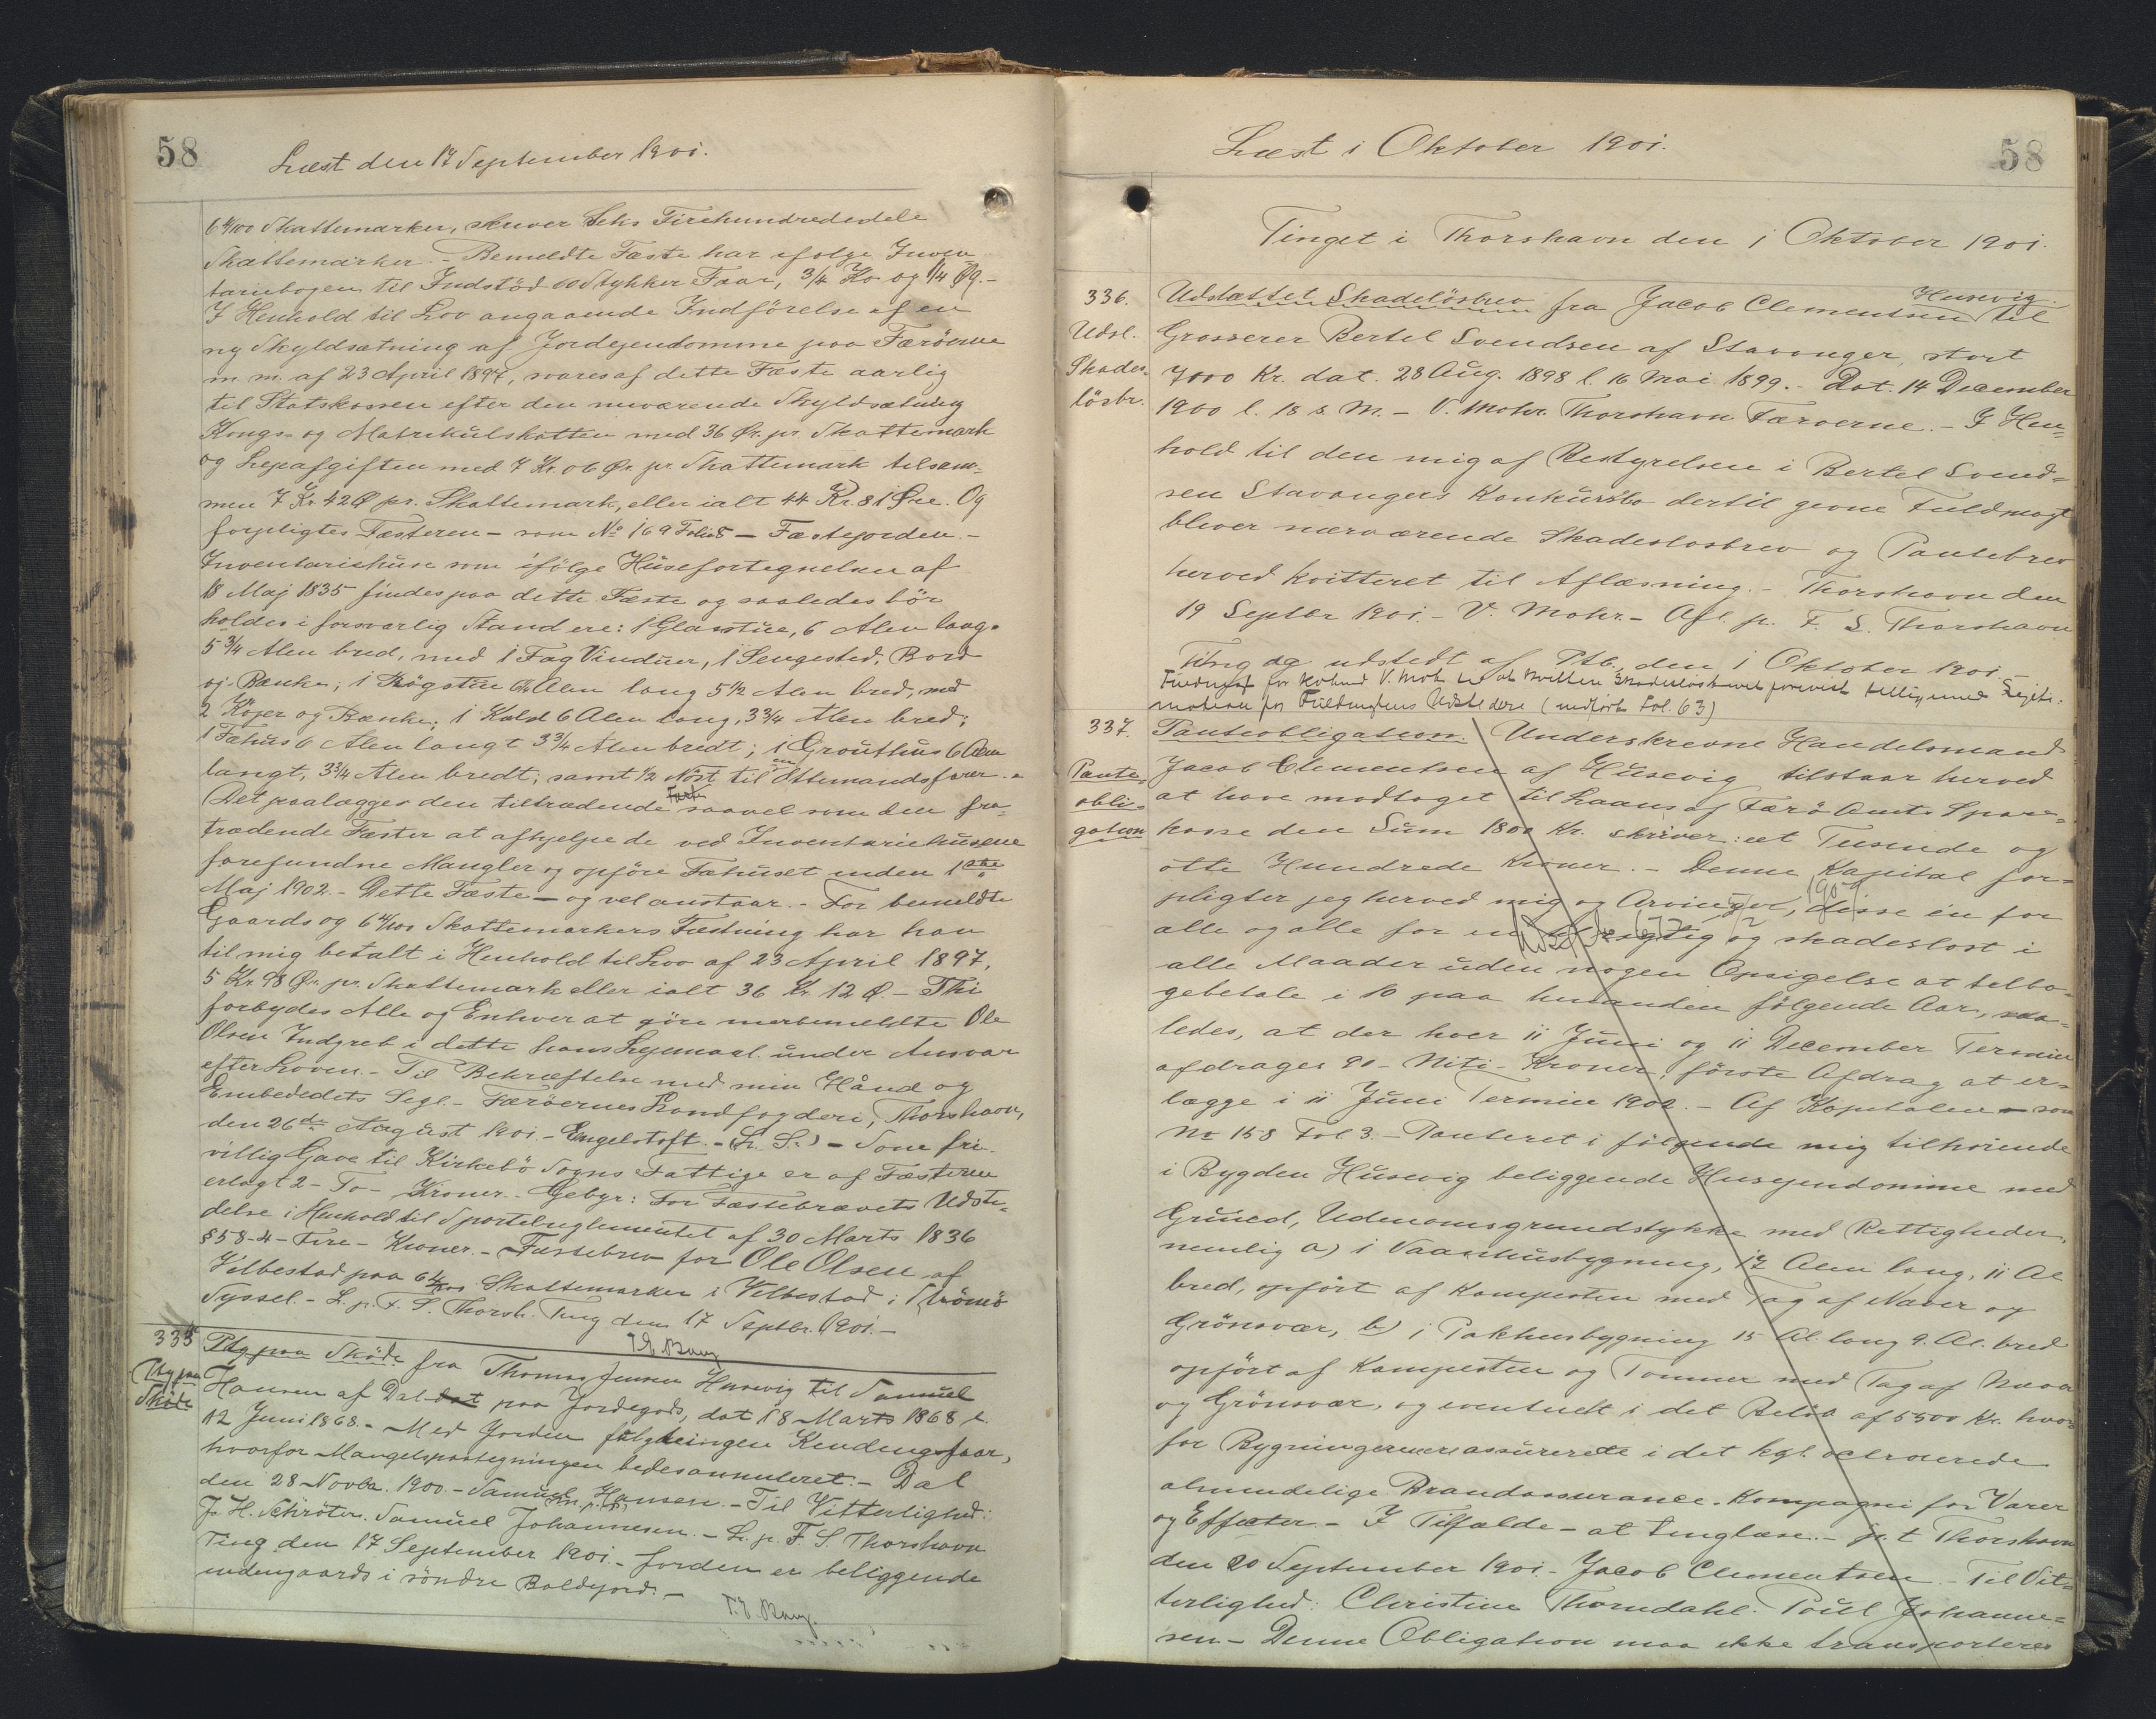 58
Læst den 17 September 1901.
6 4/100 Skattemarker, skriver Seks Firehundrededele
Skattemarker. - Bemeldte Fæste har ifølge Inven-
tariebogen til Indstöd 60 Stykker Faar, 3/4 Ko og 1/4 Øg. -
I Henhold til Lov angaaende Indförelse af en
ny Skyldsætning af Jordejendomme paa Færöerne
m. m. af 23 April 1897, svares af dette Fæste aarlig
til Statskassen efter den nuværende Skyldsætning
Kongs- og Matrikulskatten med 36 Ør. pr. Skattemark
og Lejeafgiften med 7 Kr. 06 Ør pr Skattemark tilsam-
men 7 Kr. 42 Ø pr. Skattemark, eller ialt 44 Kr. 81 Øre. Og
forpligtes Fæsteren - som No 169 Folio 5 - Fæstejorden. -
Inventariehuse som ifölge Husefortegnelsen af
18 Maj 1835 findes paa dette Fæste og saaledes bör
holdes i forsvarlig Stand ere: 1 Glasstue, 6 Alen lang.
5 3/4 Alen bred, med 1 Fag Vinduer, 1 Sengested, Bord
og Bænke; 1 Rögstue Alen lang 5 1/2 Alen bred, med
2 Köjer og Bænke; 1 Kald 6 Alen lang, 3 3/4 Alen bred;
1 Fæhus 6 Alen langt 3 3/4 Alen bredt; 1 Grouthus 6 Alen
langt, 3 3/4 Alen bredt; samt 1/2 Nöst til en Ottemandsfarer. -
Det paalægges den tiltrædende Fæster saavel som den fra-
trædende Fæster at afhjelpe de ved Inventariehusene
forefundne Mangler og opföre Fæhuset inden 1ste
Maj 1902. - Dette Fæste - og vel anstaar. - For bemeldte
Gaards og 6 4/100 Skattemarkers Fæstning har han
til mig betalt i Henhold til Lov af 23 April 1897,
5 Kr. 98 Ør. pr. Skattemark eller ialt 36 Kr. 12 Ø. - Thi
forbydes Alle og Enhver at göre merbemeldte Ole
Olsen Indgreb i dette hans Lejemaal under Ansvar
efter Loven. - Til Bekræftelse med min Hånd og
Embededets Segl. - Færöernes Landfogderi, Thorshavn,
den 26de August 1901. - Engelstoft. - (L. S.) - Som fri-
villig Gave til Kirkebö Sogns Fattige er af Fæsteren
erlagt 2 - To - Kroner. - Gebyr: For Fæstebrevets Udste-
delse i Henhold til Sportelreglementet af 30 Marts 1836
§ 58 - 4 - Fire - Kroner. - Fæstebrev for Ole Olsen af
Velbestad paa 6 4/100 Skattemarker i Velbestad i Strömö
Syssel. - L. p. F. S. Thorsh. Ting den 17 Septbr. 1901. -
T.E. Bang
335
Ptg paa
Sköde
Ptg paa Sköde fra Thomas Jensen Husevig til Samuel
Hansen af Dal paa Jordegods, dat 18 Marts 1868 l.
12 Juni 1868. - Med Jorden fulgte ingen Kendingsfaar,
hvorfor Mangelspaategningen bedes annuleret. - Dal
den 28 Novbr. 1900. - Samuel Hansen. - Til Vitterlighed:
J. H. Schröter. Samuel Johannesen. - L. p. F. S. Thorshavn
Ting den 17 September 1901. - Jorden er beliggende
indengaards i söndre Boldejord. -
T. E. Bang.
Læst i Oktober 1901.
58
Tinget i Thorshavn den 1 Oktober 1901.
336.
Udsl.
Skades-
lösbr.
Udslettet Skadelösbrev fra Jacob Clementsen Husevig til
Grosserer Bertel Svendsen af Stavanger, stort
7000 Kr. dat. 28 Aug. 1898 l. 16 Mai 1899. - Dat. 14 December
1900 l. 18 s. M. - V. Mohr. Thorshavn Færoerne. - I Hen-
hold til den mig af Bestyrelsen i Bertel Svend-
sen Stavangers Konkursbo dertil givne Fuldmagt
bliver nærværende Skadeslosbrev og Pantebrev
herved kvitteret til Aflæsning. - Thorshavn den
19 Septbr 1901. - V. Mohr. - Afl. p. F. S. Thorshavn
Ting og udstedt af Ptb. den 1 Oktober 1901 -
Fuldmagt for Købmd V. Mohr til at kvittere Skadeslösbrevet forevist tilligemed Legiti-
mation for Fuldmagtens Udstedere (indfört Fol. 63)
337.
Pante-
obli-
gation
Panteobligation. Underskrevne Handelsmand
Jacob Clementsen af Husevig tilstaar herved
at have modtaget til Laans af Færö Amts Spare-
kasse den Sum 1800 Kr. skriver: eet Tusende og
otte Hundrede Kroner. - Denne Kapital for-
pligter jeg herved mig og Arvinger, disse én for
alle og alle for en, rigtig og skadeslost i
alle Maader uden nogen Opsigelse at tilba-
gebetale i 10 paa hinanden fölgende Aar, saa-
ledes, at der hver 11 Juni og 11 December Termin
afdrages 90 - Niti - Kroner, förste Afdrag at er-
lægge i 11 Juni Termin 1902. - Af Kapitalen - som
No 158 Fol 3. - Panteret i fölgende mig tilhörende
i Bygden Husevig beliggende Husejendomme med
Grund, Udenomsgrundstykke med Rettigheder,
nemlig a) 1 Vaanhusbygning, 12 Alen lang, 11 Al
bred, opfört af Kampesten med Tag af Næver og
Grönsvær, b) 1 Pakhusbygning 15 Al. lang 9. Al. bred
opfört af Kampesten og Tømmer med Tag af Næver
og Grönsvær, og eventuelt i det Belöb af 5500 Kr. hvor-
for Bygningerne ere assurerede i det kgl. octroierede
almindelige Brandassurance-Kompagni for Varer
og Effecter. - I Tilfælde - at tinglæse. - p. t Thorshavn
den 20 September 1901. - Jacob Clementsen. - Til Vit-
terlighed: Christine Thomdahl. Poul Johanne-
sen - Denne Obligation maa ikke transporteres